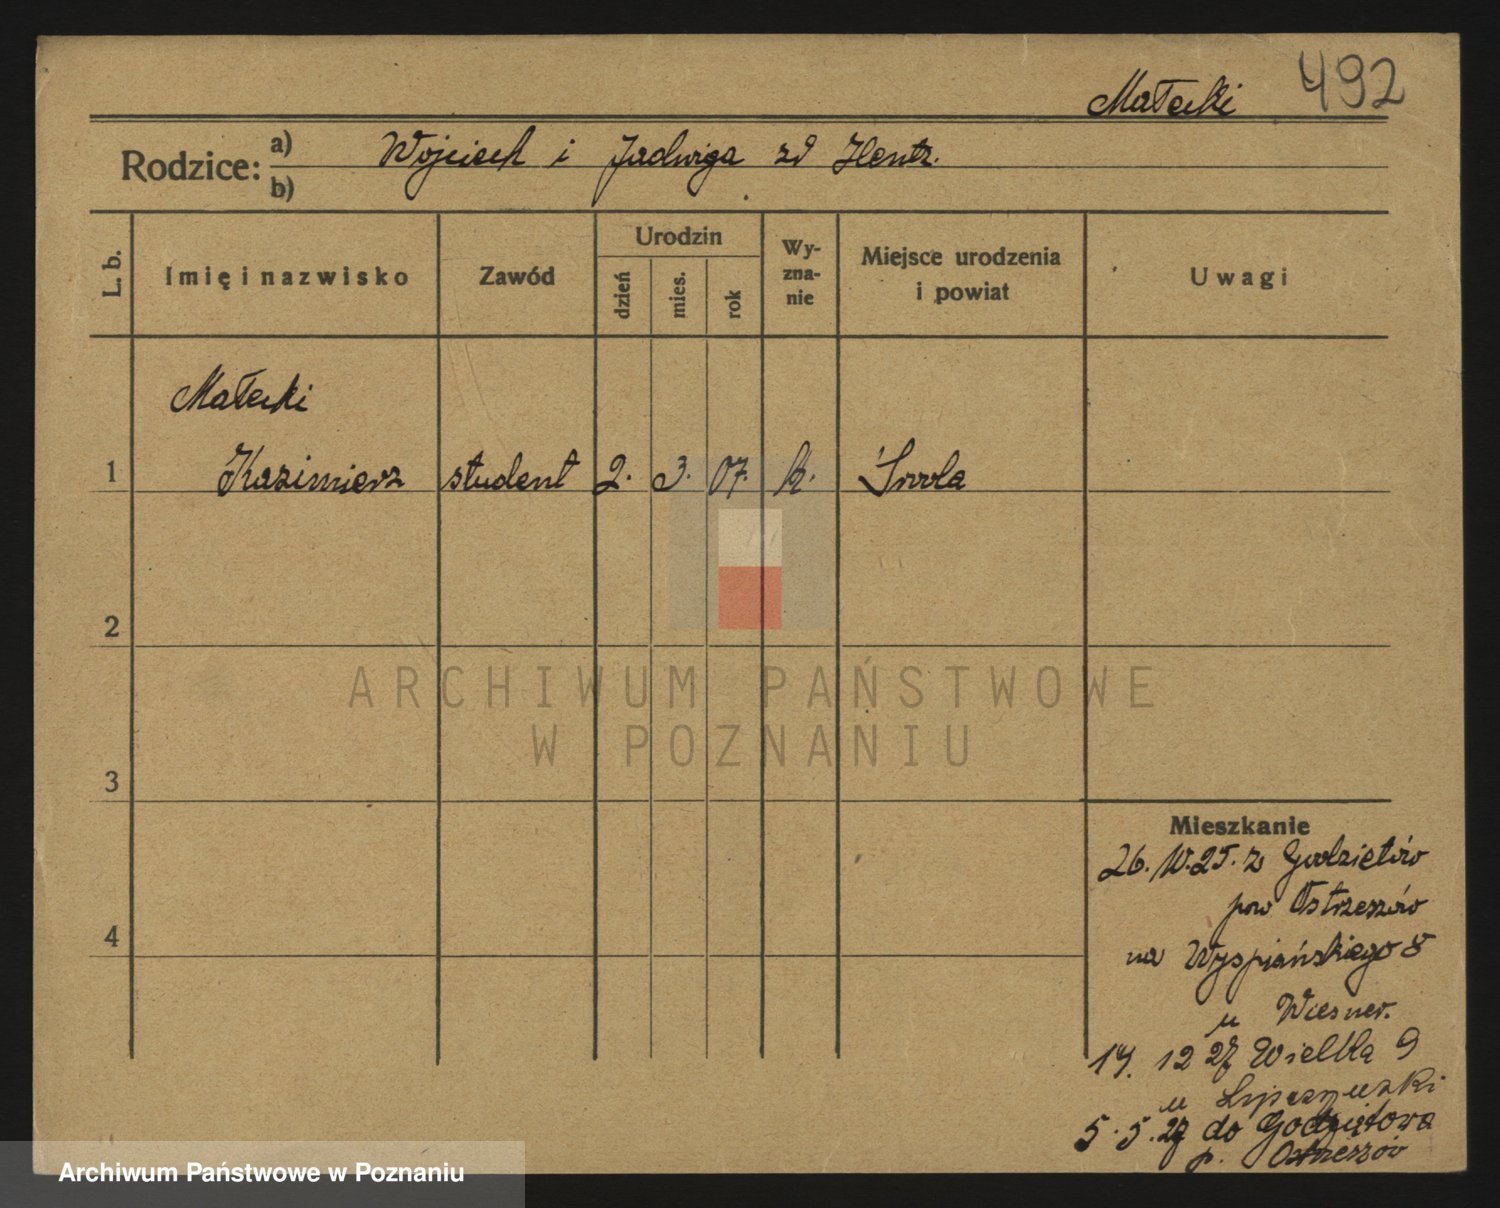 492
Małecki
Rodzice: a) Wojciech i Jadwiga zd Hentz.
b)
L. b.
Imię i nazwisko
Zawód
Urodzin
dzień
mies.
rok
Wy-
zna-
nie
Miejsce urodzenia
i powiat
Uwagi
Małecki
1 Kazimierz student 2. 3. 07. k. Środa
2
3
4
ARCHIWUM PAŃSTWOWE
W POZNANIU
Mieszkanie
26. 25. z
pow Ostrzeszów
na Wyspiańskiego 8
u Wiesner.
19. 12 27 Wielka 9
u
5. 5. do Godziętowa
p. Ostrzeszów
Archiwum Państwowe w Poznaniu